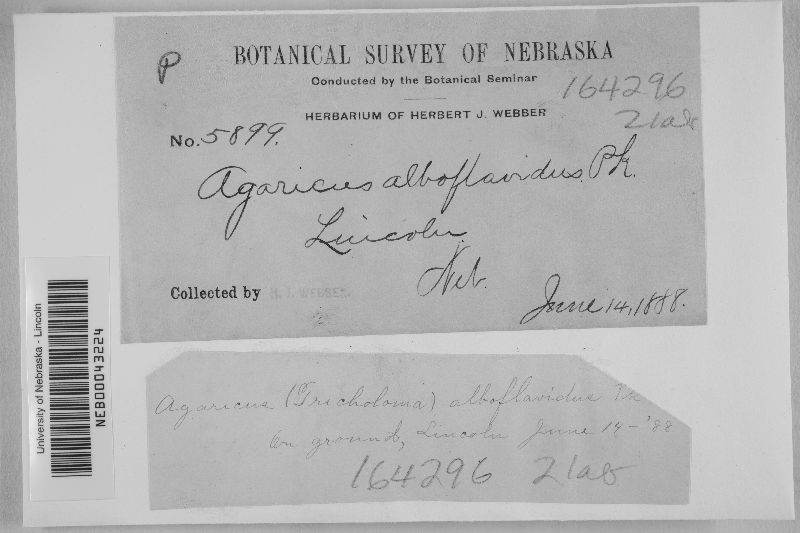 P
BOTANICAL SURVEY OF NEBRASKA
Conducted by the Botanical Seminar
164296
HERBARIUM OF HERBERT J. WEBBER
21ab
No. 5899.
Agaricus alboflavidus. Pk.
Lincoln
Neb.
Collected by H. J. WEBBER.
June 14, 1888.
University of Nebraska - Lincoln
NEB00043224
Agaricus (Tricholoma) alboflavidus Pk
On ground, Lincoln June 14-'88
164296 21ab